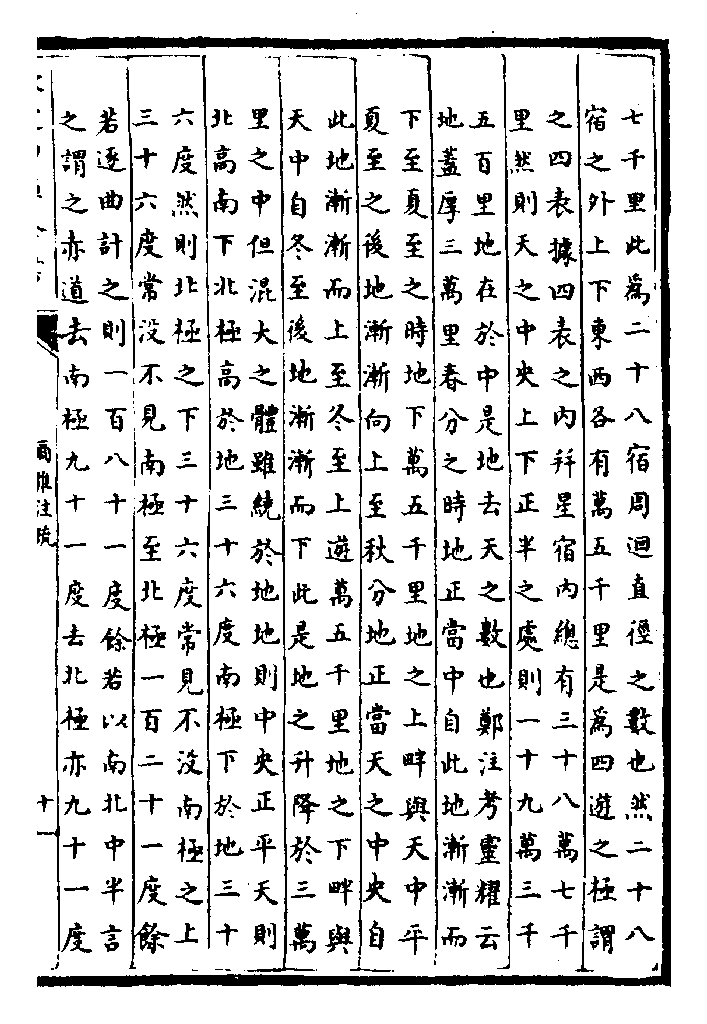 七千里此為二十八宿周迴直徑之數也然二十八
宿之外上下東西各有萬五千里是為四遊之極謂
之四表據四表之內并星宿內總有三十八萬七千
里然則天之中央上下正半之處則一十九萬三千
五百里地在於中是地去天之數也鄭注考靈耀云
地蓋厚三萬里春分之時地正當中自此地漸漸而
下至夏至之時地下萬五千里地之上畔與天中平
夏至之後地漸漸向上至秋分地正當天之中央自
此地漸漸而上至冬至上遊萬五千里地之下畔與
天中自冬至後地漸漸而下此是地之升降於三萬
里之中但混大之體雖繞於地地則中央正平天則
北高南下北極高於地三十六度南極下於地三十
六度然則北極之下三十六度常見不沒南極之上
三十六度常沒不見南極至北極一百二十一度餘
若逐曲計之則一百八十一度餘若以南北中半言
之謂之赤道去南極九十一度去北極亦九十一度
爾雅注疏
十一